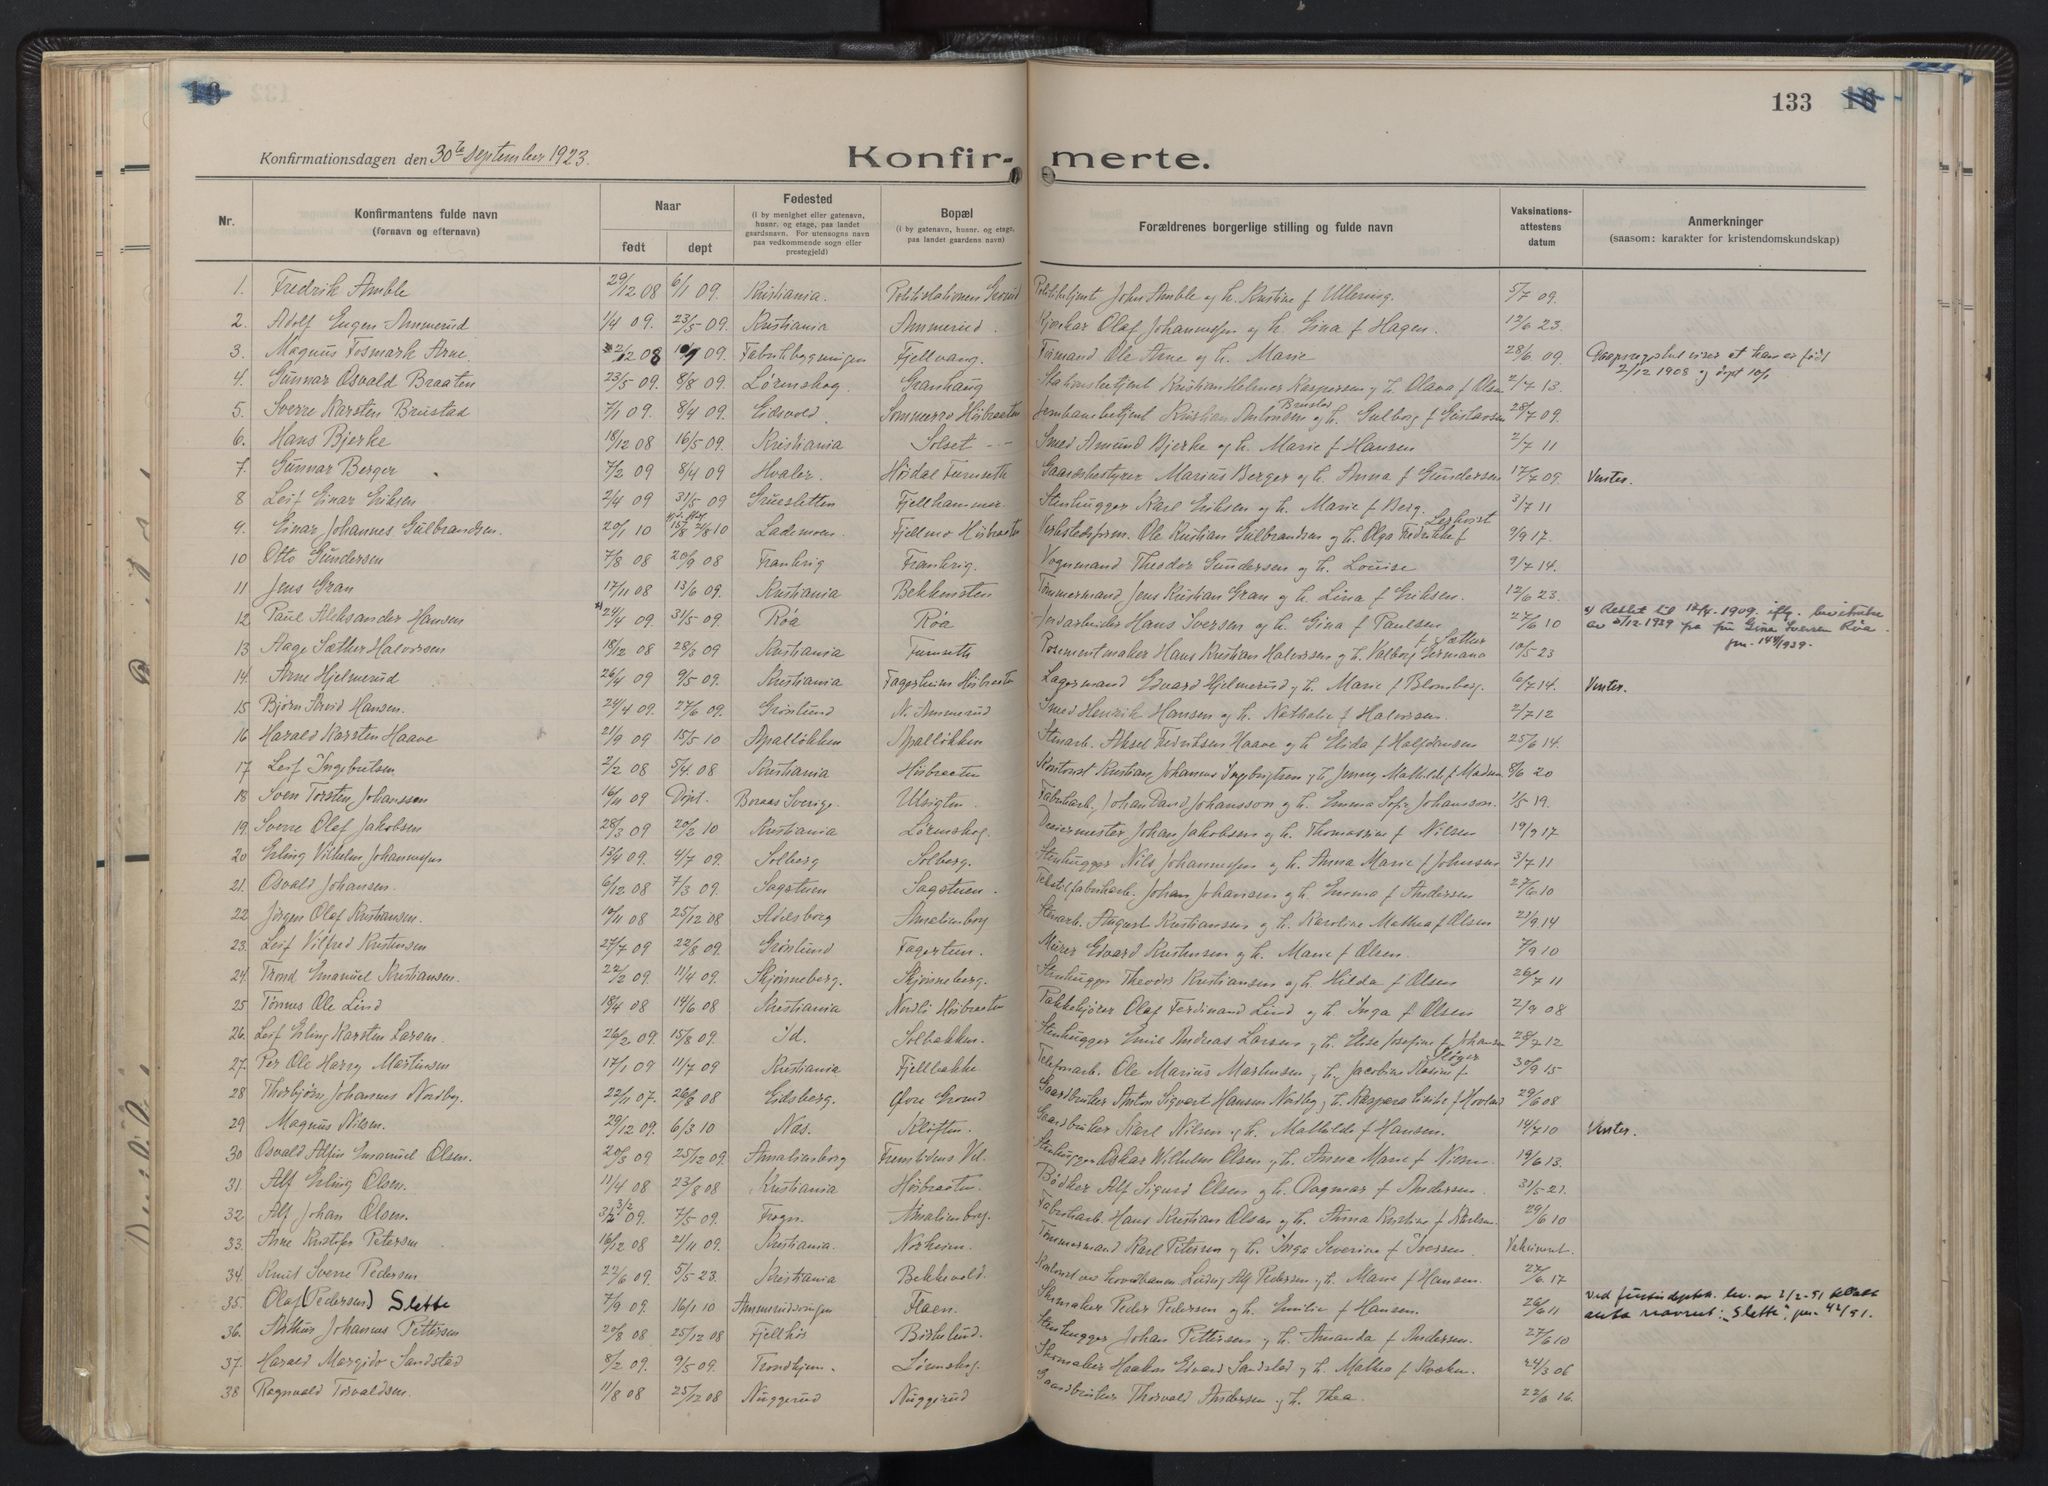 133
Konfirmationsdagen den 30te september 1923.
Konfir- merte.
Nr.
Konfirmantens fulde navn
(fornavn og efternavn)
Naar
født
døpt
Fødested
(i by menighet eller gatenavn,
husnr. og etage, paa landet
gaardsnavn. For utensogns navn
paa vedkommende sogn eller
prestegjeld)
Bopæl
(i by gatenavn, husnr. og etage,
paa landet gaardens navn)
Forældrenes borgerlige stilling og fulde navn
Vaksinations-
attestens
datum
Anmerkninger
(saasom: karakter for kristendomskundskap)
1. Fredrik Amble 29/12 08 6/1 09. Kristiania. Politistationen Grorud Politibetjent John Amble og h. Kristine f Ullering. 5/7 09.
2. Adolf Eugen Ammerud 1/4 09. 23/5 09. Kristiania Ammerud. Olaf Johannessen og h. Gina f Hagen. 12/6 23.
3. Magnus Fosmark Arne. 2/12 08 10/1 09. Fabrikbygningen Fjellvang. Formand Ole Arne og h. Marie 28/6 09. Daapsregistret viser at han er født
2/12 1908 og døpt 10/1
4. Gunnar Osvald Braaten 23/5 09. 8/8 09. Lørenskog. Granhaug Stationsbetjent Kristian Helmer Kaspersen og h. Olava f Olsen 2/7 13.
5. Sverre Karsten Brustad 7/1 09. 8/4 09. Eidsvold. Sommerro Høibraaten Jernbanebetjent Kristian Antonsen Brustad og h. Gulborg f Gustavsen 28/7 09.
6. Hans Bjerke 18/12 08 16/5 09. Kristiania Solset Smed Amund Bjerke og h. Marie f Hansen 2/7 11
7. Gunnar Berger 7/2 09 8/4 09 Hvaler. Høidal Furuseth Gaardsbestyrer Marius Berger og h. Anna f Gundersen 17/7 09. Venter.
8 Leif Einar Eriksen 2/4 09 31/5 09 Gruesletten Fjellhammer. Stenhugger Karl Eriksen og h. Marie f Berg. 3/7 11
9. Einar Johannes Gulbrandsen. 20/1 10 15/8 21/8 10 Lademoen. Fjellmo Høibraaten Verkstedsform. Ole Kristian Gulbrandsen og h. Olga Fredrikke f 9/9 17.
10 Otto Gundersen 7/8 08 20/9 08 Frankrig. Frankrig. Vognmand Theodor Gundersen og h. Louise 9/7 14.
11 Jens Gran 17/11 08 13/6 09. Kristiania Bekkensten Tømmermand Jens Kristian Gran og h. Lina f Eriksen. 12/6 23.
12 Paul Aleksander Hansen x) 24/4 09. 31/5 09. Røa Røa Jordarbeider Hans Iversen og h. Gina f Paulsen 27/6 10 x) Rettet til 12/4 1909. iflg.
av 5/12-1939 fra fru Gina Iversen Røa.
jnr. 144/1939.
13 Aage Sæther Halvorsen 18/12 08 28/3 09 Kristiania Furuseth Posementmaker Hans Kristian Halvorsen og h. Valborg Germana f Sæther 10/5 23
14 Arne Hjelmerud 26/4 09 9/5 09. Kristiania Fagerheim Høibraaten Lagermand Edvard Hjelmerud og h. Marie f Blomberg. 6/7 14. Venter.
15 Bjørn Arvid Hansen. 24/4 09. 27/6 09. Grønlund N. Ammerud Smed Henrik Hansen og h. Nathalie f Halvorsen. 2/7 12
16 Harald Karsten Haave 21/9 09 15/5 10 Apalløkken Apalløkken Stenarb. Aksel Fredriksen Haave og h. Elida f Halfdansen 25/6 14.
17 Leif Ingebretsen 2/2 08 5/4 08 Kristiania Høibraaten Kontorist Kristian Johannes Ingebrigtsen og h. Jenny Mathilde f Madsen 8/6 20
18 Sven Torsten Johanssen 16/11 09 Døpt. Boraas Sverige. Utsigten. Fabrikarb. Johan David Johansson og h. Emma Sofie Johansson. 1/5 19.
19. Sverre Olaf Jakobsen 28/3 09 20/2 10 Kristiania Lørenskog. Dreiermester Johan Jakobsen og h. Thomasine f Nilsen 19/9 17
20 Erling Vilhelm Johannessen 13/4 09. 4/7 09. Solberg Solberg. Stenhugger Nils Johannessen og h. Anna Marie f Johnsen 3/7 11
21. Osvald Johansen. 6/12 08 7/3 09. Sagstuen Sagstuen. Tekstilfabrikarb. Johan Johansen og h. Emma f Andersen 27/6 10
22 Jørgen Olaf Kristiansen. 10/11 08 25/12 08 Adelsborg Amalienborg Stenarb. August Kristiansen og h. Karoline Mathea f Olsen 21/9 14
23. Leif Vilfred Kristensen 27/7 09 22/8 09. Grønlund Fagertun. Murer Edvard Kristensen og h. Marie f Olsen. 7/9 10
24. Trond Emanuel Kristiansen. 22/2 09. 11/4 09. Skjønneberg. Skjønneberg. Stenhugger Theodor Kristiansen og h. Hilda f Olsen 26/7 11
25 Tønnes Ole Lind 18/4 08 14/6 08 Kristiania Nordli Høibraaten Pakkekjører Olaf Ferdinand Lind og h. Inga f Olsen 2/9 08
26. Leif Erling Karsten Larsen. 26/2 09. 15/8 09. Id. Solbakken. Stenhugger Emil Andreas Larsen og h. Elise Josefine f Johansen 28/7 12
27. Per Ole Harry Martinsen 17/1 09 11/7 09 Kristiania Fjellbakke Telefonarb. Ole Marius Martinsen og h. Jacobine f 30/9 15
28 Thorbjørn Johannes Nordby. 22/11 07. 26/8 08 Eidsberg. Øvre Grorud Gaardbruker Anton Sigvart Hansen Nordby og h. Kaspara Lisebet f Hovland 29/6 08
29. Magnus Nilsen. 29/12 09. 6/3 10 Næs. Kløften. Gaardbruker Karl Nilsen og h. Mathilde f Hansen. 14/7 10 Venter.
30 Osvald Alfin Emanuel Olsen. 20/3 09 25/12 09. Amalienborg Fremtidens Vel. Stenhugger Oskar Wilhelm Olsen og h. Anna Marie f Nilsen. 19/6 13.
31. Alf Erling Olsen. 11/4 08 23/8 08 Kristiania Høibraaten. Bødker Alf Sigurd Olsen og h. Dagmar f Andersen. 31/5 21.
32. Alf Johan Olsen. 3/2 09. 7/5 09. Frogn. Amalienborg. Fabrikarb. Hans Kristian Olsen og h. Anna Kristine f Karlsen. 29/6 10
33. Arne Kristofer Petersen 16/12 08 21/11 09. Kristiania. Norheim. Tømmermand Karl Petersen og h. Inga Severine f Iversen. Vaksinert.
34. Knut Sverre Pedersen 22/6 09. 5/5 23. Kristiania Bekkevold. Kontorist Ludvig Alf Pedersen og h. Marie f Hansen. 27/6 17
35. Olaf (Pedersen) Slette 7/9 09. 16/1 10 Ammerudsvingen Flaen. Skomaker Peder Pedersen og h. Emilie f Hansen. 26/6 11 Ved justisdeptm. bev. av 2/2-51 tillatt
anta navnet: "Slette". jnr. 42/51.
36. Arthur Johannes Pettersen 20/8 08 25/12 08 Fjellhøi Birkelund. Stenhugger Johan Pettersen og h. Amanda f Andersen. 27/6 10
37. Harald Margido Sandstad 8/2 09. 9/5 09. Trondhjem. Lørenskog. Skomaker Haakon Edvard Sandstad og h. Mathea f Kvæken. 24/3 06
38 Ragnvald Torvaldsen. 11/8 08 25/12 08 Nuggerud Nuggerud Gaardbruker Thorvald Andersen og h. Thea. 22/8 16.